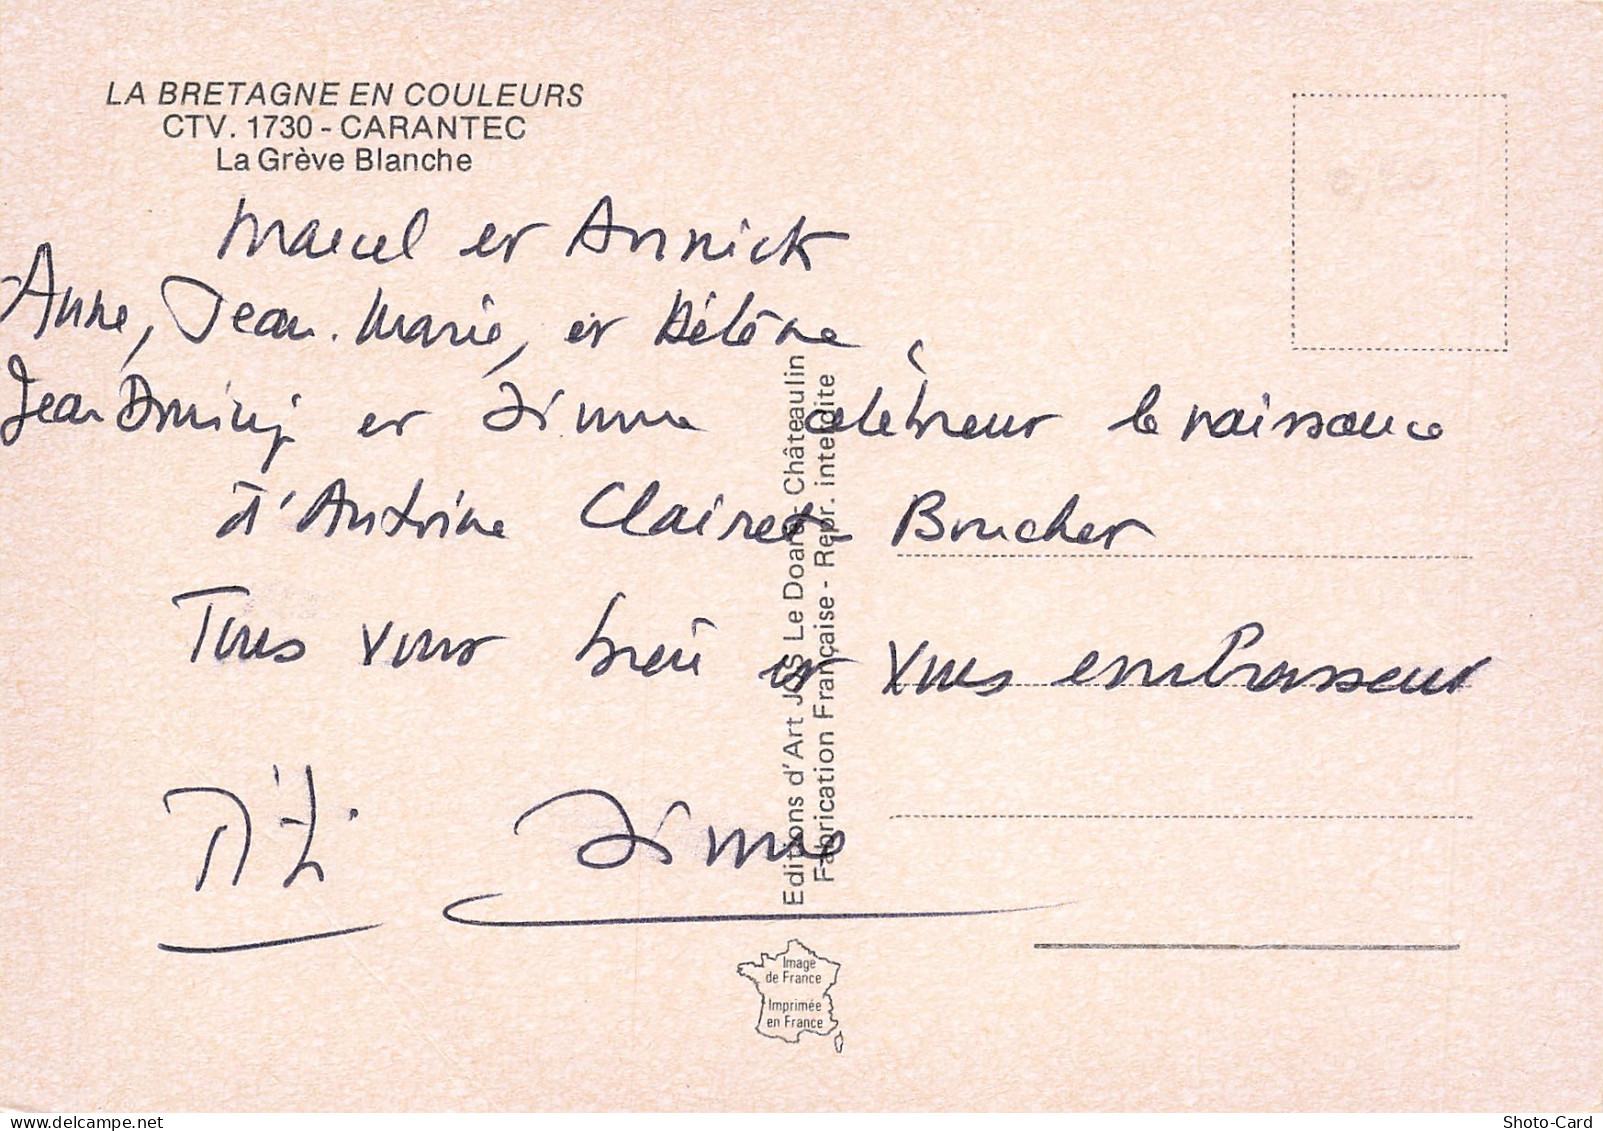 LA BRETAGNE EN COULEURS
CTV. 1730 - CARANTEC
La Grève Blanche
Marcel et Annick
Anne, Jean-Marie, et Hélène,
Jean Dominiq et Simone célèbrent la naissance
d'Antoine Clairet-Boucher
Tous vont bien et vous embrassent
Simone
Editions d'Art JOS Le Doaré - Châteaulin
Fabrication Française - Repr. interdite
Image
de France
Imprimée
en France
Shoto-Card